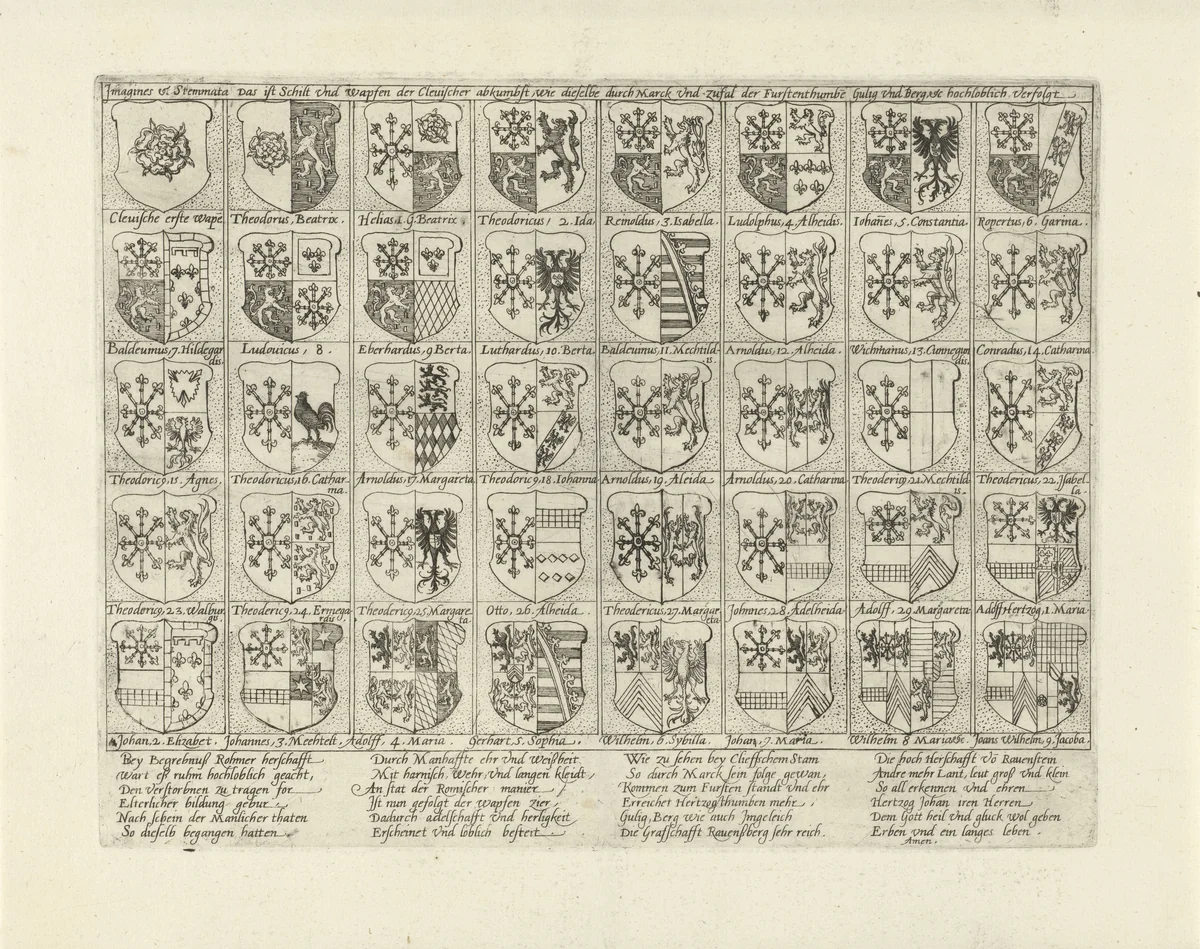 Imagines et Stemmata Das ist Schilt Und Wapfen der Cleuischer abkumbst, wie dieselbe durch Marck Und zufal der Furstenthumbe Gulig Und Berg, &c hochloblich Verfolgt
Cleuische erste Wape
Theodorus, Beatrix.
Helias 1. G. Beatrix.
Theodoricus, 2. Ida
Reinoldus, 3. Isabella.
Ludolphus, 4. Alheidis.
Iohanes, 5. Constantia.
Ropertus, 6. Garina.
Baldeuinus, 7. Hildegardis.
Ludovicus, 8.
Eberhardus, 9 Berta.
Luthardus, 10. Berta.
Baldeuinus, 11. Mechtildis.
Arnoldus, 12. Alheida.
Wichmanus, 13. Cunnegundis.
Conradus, 14. Catharina.
Theodoric9, 15. Agnes.
Theodoricus, 16. Catharina.
Arnoldus, 17. Margareta
Theodoric9. 18. Iohanna
Arnoldus, 19. Aleida
Arnoldus, 20. Catharina
Theoderic9 21. Mechtildis.
Theodericus, 22. Isabella
Theodoric9, 23. Walburgis.
Theoderic9, 24. Ermegardis
Theodoric9, 25. Margareta
Otto, 26. Alheida.
Theodericus, 27. Margareta
Johnnes, 28. Adelheida
Adolff, 29. Margareta
Adolff Hertzog, 1. Maria
Johan, 2. Elizabet.
Johannes, 3. Mechtelt.
Adolff, 4. Maria.
Gerhart, 5. Sophia.
Wilhelm, 6. Sybilla.
Johan, 7. Maria.
Wilhelm 8 Maria &c.
Joans Wilhelm, 9. Jacoba.
Bey Begrebnuß Rohmer herschafft
Wart eß ruhm hochloblich geacht,
Den Verstorbnen zu tragen for
Elterlicher bildung gebur
Nach schein der Manlicher thaten
So dieselb begangen hatten.
Durch Manhaffte ehr Und Weißheit
Mit harnisch, Wehr, Und langen kleidt,
An stat der Romischer manier,
Ist nun gefolgt der Wapfen zier,
Dadurch adelschafft Und herligkeit
Erscheinet Und loblich besteit
Wie zu sehen bey Clieffschem Stam
So durch Marck sein folge gewan,
Kommen zum Fursten standt Und ehr
Erreichet Hertzogthumben mehr,
Gulig, Berg wie auch Imgeleich
Die Graffschafft Rauenßberg sehr reich.
Die hoch Herschafft Vo Rauenstein
Andre mehr Lant, leut groß Und klein
So all erkennen Und ehren
Hertzog Johan iren Herren
Dem Gott heil Und gluck wol geben
Erben Und ein langes leben.
Amen.